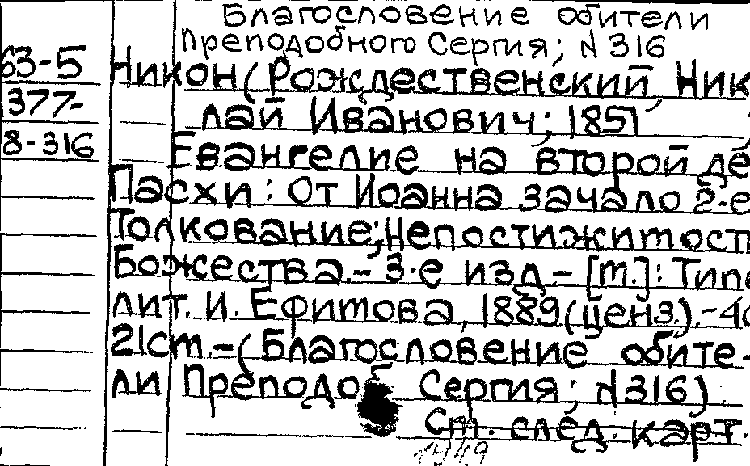 Благословение обители
Преподобного Сергия; N 316
63-5 Никон (Рождественский, Ник
377- лай Иванович; 1851
8-316 Евангелие на второй де
Пасхи: От Иоанна зачало 2-е
Толкование; Непостижимост
Божества. - 3-е изд. - [М.]: Типо
лит. И. Ефимова, 1889 (ценз.). - 4с
21см. - (Благословение обите-
ли Препод Сергия; N 316)
См. след. карт.